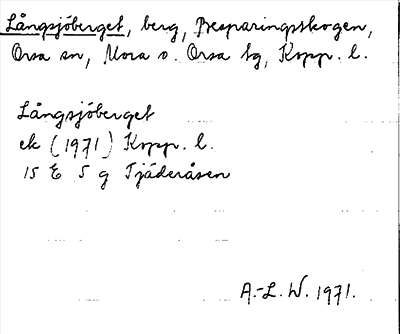 Långsjöberget, berg, Besparingsskogen,
Orsa sn, Mora o. Orsa tg, Kopp. l.
Långsjöberget
ek (1971) Kopp. l.
15 E 5 g Tjäderåsen
A.-L. W. 1971.